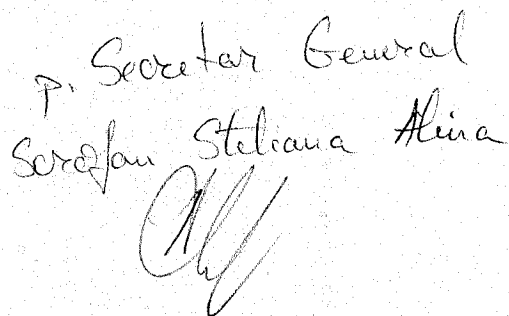 p. Secretar General
Serafan Steliana Alina